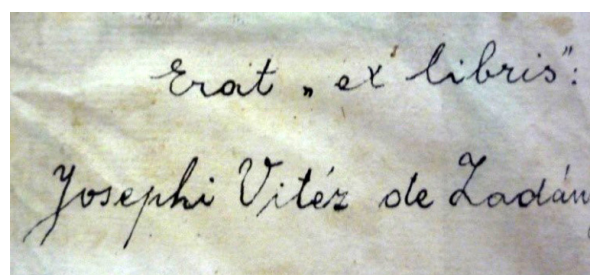 Erat „ex libris”:
Josephi Vitéz de Zadány